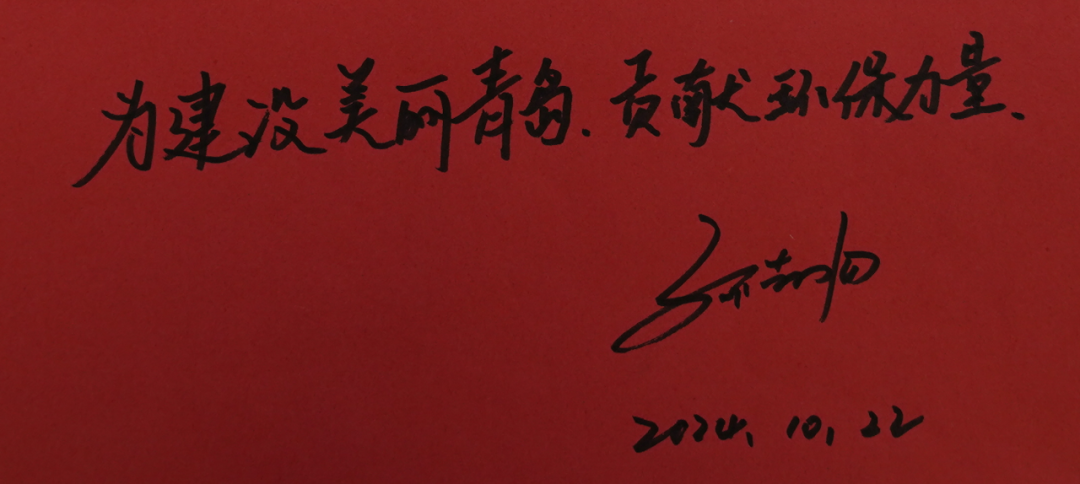 为建设美丽青岛、贡献环保力量、
2024.10.22